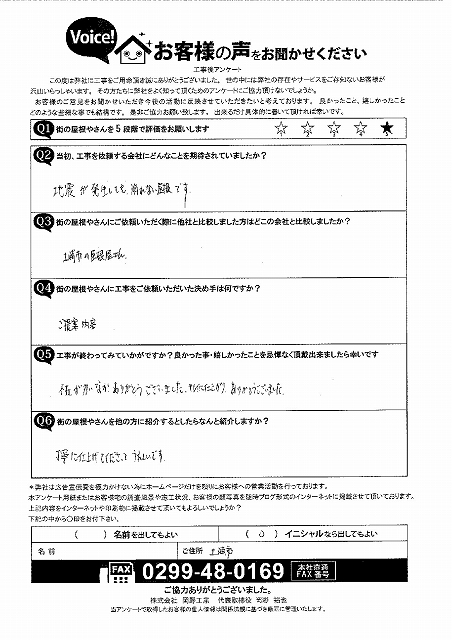 Voice!
お客様の声をお聞かせください
工事後アンケート
この度は弊社に工事をご用命頂き誠にありがとうございました。世の中には弊社の存在やサービスをご存知ないお客様が
沢山いらっしゃいます。その方たちに弊社をよく知って頂くためのアンケートにご協力頂けないでしょうか。
お客様のご意見をお聞かせいただき今後の活動に反映させていただきたいと考えております。良かったこと、嬉しかったこと
どのような些細な事でも結構です。是非ご協力お願い致します。出来るだけ具体的に書いて頂ければ幸いです。
Q1 街の屋根やさんを5段階で評価をお願いします ☆ ☆ ☆ ☆ ★
Q2 当初、工事を依頼する会社にどんなことを期待されていましたか?
地震が発生しても、崩れない屋根です
Q3 街の屋根やさんにご依頼いただく際に他社と比較しました方はどこの会社と比較しましたか?
土浦市の屋根屋さん
Q4 街の屋根やさんに工事をご依頼いただいた決め手は何ですか?
ご提案内容
Q5 工事が終わってみていかがですか?良かった事・嬉しかったことを忌憚なく頂戴出来ましたら幸いです
ありがとうございました。 ありがとうございました
Q6 街の屋根やさんを他の方に紹介するとしたらなんと紹介しますか?
丁寧に仕上げてくださって うれしいです
*弊社は広告宣伝費を極力かけない為にホームページだけを頼りにお客様への営業活動を行っております。
本アンケート用紙またはお客様宅の調査風景や施工状況、お客様の顔写真を随時ブログ形式のインターネットに掲載させて頂いております。
上記内容をインターネットや印刷物に掲載させて頂いてもよろしいでしょうか?
下記の中から○印をお付下さい。
( ) 名前を出してもよい ( ○ ) イニシャルなら出してもよい
名前 ご住所 土浦市
FAX 0299-48-0169 本社直通 FAX番号
ご協力ありがとうございました。
株式会社 岡野工業 代表取締役
当アンケートで取得したお客様の個人情報は関係法規に基づき厳重に管理いたします。